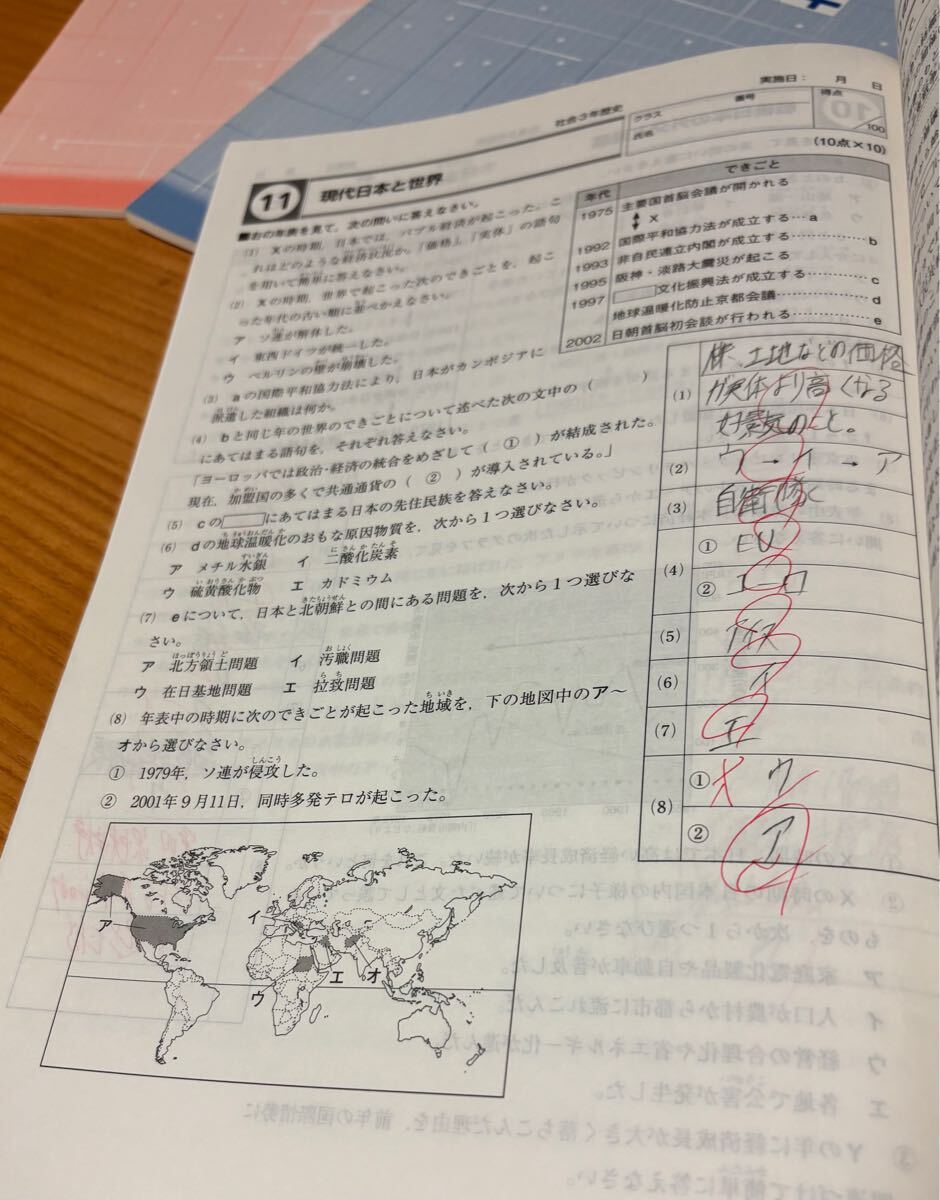 実施日： 月 日
社会３年歴史
クラス 番号 得点
氏名 10 /100
11 現代日本と世界 (10点×10)
■右の年表を見て，次の問いに答えなさい。
(1) Xの時期，日本では，バブル経済が起こった。こ
れはどのような経済状況か。「価格」，「実体」の語句
を用いて簡単に答えなさい。
(2) Xの時期，世界で起こった次のできごとを，起こ
った年代の古い順に並べかえなさい。
ア ソ連が解体した。
イ 東西ドイツが統一した。
ウ ベルリンの壁が崩壊した。
(3) aの国際平和協力法により，日本がカンボジアに
派遣した組織は何か。
(4) bと同じ年の世界のできごとについて述べた次の文中の（ ）
にあてはまる語句を，それぞれ答えなさい。
「ヨーロッパでは政治・経済の統合をめざして（ ① ）が結成された。
現在，加盟国の多くで共通通貨の（ ② ）が導入されている。」
(5) cの□にあてはまる日本の先住民族を答えなさい。
(6) dの地球温暖化のおもな原因物質を，次から１つ選びなさい。
ア メチル水銀 イ 二酸化炭素
ウ 硫黄酸化物 エ カドミウム
(7) eについて，日本と北朝鮮との間にある問題を，次から１つ選びな
さい。
ア 北方領土問題 イ 汚職問題
ウ 在日基地問題 エ 拉致問題
(8) 年表中の時期に次のできごとが起こった地域を，下の地図中のア～
オから選びなさい。
① 1979年，ソ連が侵攻した。
② 2001年９月11日，同時多発テロが起こった。
年代 できごと
1975 主要国首脳会議が開かれる
X
1992 国際平和協力法が成立する…a
1993 非自民連立内閣が成立する………b
1995 阪神・淡路大震災が起こる
1997 □文化振興法が成立する………c
地球温暖化防止京都会議………d
2002 日朝首脳初会談が行われる………e
(1) 株、土地などの価格
が実体より高くなる
好景気のこと。
(2) ウ → イ → ア
(3) 自衛隊
(4) ① EU
② ユーロ
(5) アイヌ
(6) イ
(7) エ
(8) ① ウ
② ア
ア
イ
ウ
エ
オ